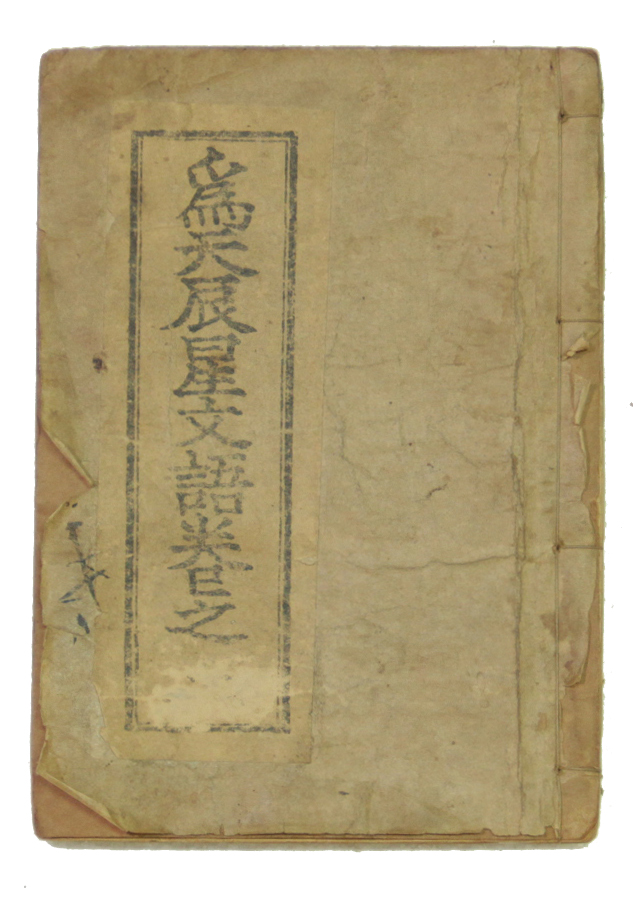 爲天辰星文語卷之